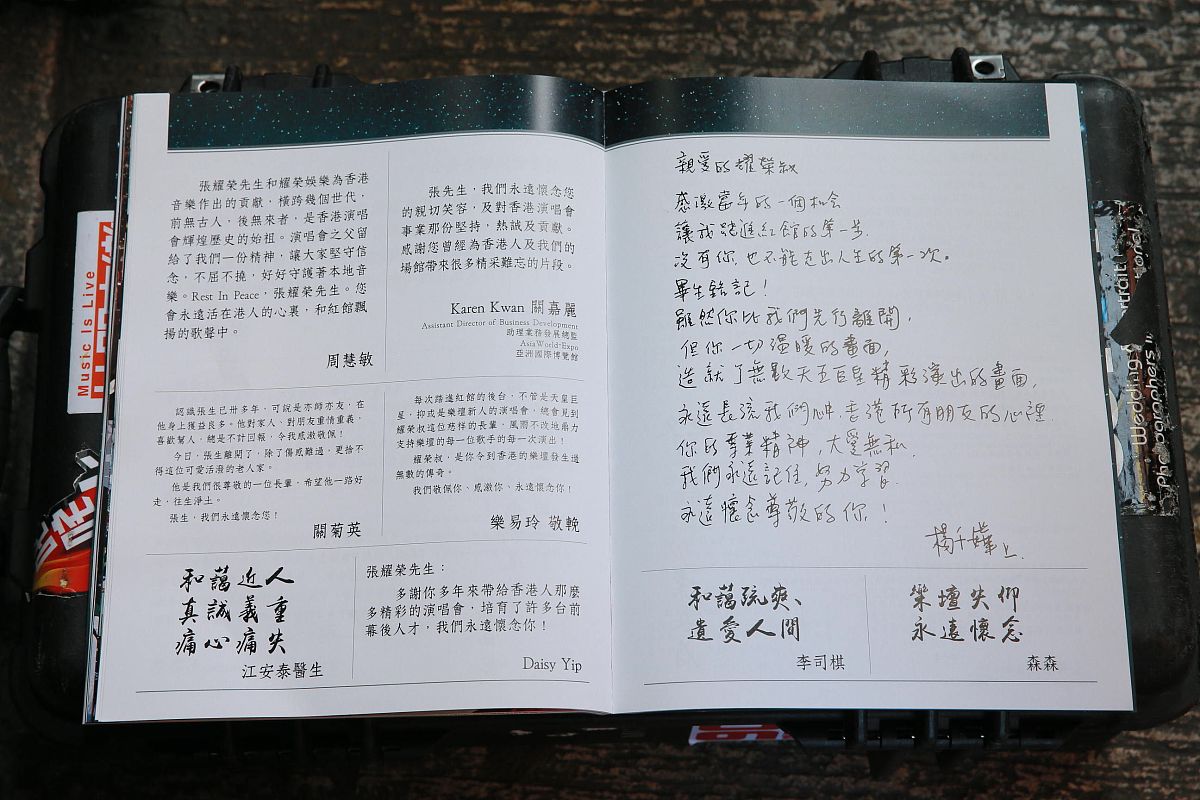 張耀榮先生和耀榮娛樂為香港
音樂作出的貢獻，橫跨幾個世代，
前無古人，後無來者，是香港演唱
會輝煌歷史的始祖。演唱會之父留
給了我們一份精神，讓大家堅守信
念，不屈不撓，好好守護著本地音
樂。Rest In Peace，張耀榮先生。您
會永遠活在港人的心裏，和紅館飄
揚的歌聲中。
周慧敏
張先生，我們永遠懷念您
的親切笑容，及對香港演唱會
事業那份堅持，熱誠及貢獻。
感謝您曾經為香港人及我們的
場館帶來很多精采難忘的片段。
Karen Kwan 關嘉麗
Assistant Director of Business Development
助理業務發展總監
AsiaWorld-Expo
亞洲國際博覽館
認識張生已卅多年，可說是亦師亦友，在
他身上獲益良多。他對家人、對朋友重情重義，
喜歡幫人，總是不計回報，令我感激敬佩！
今日，張生離開了，除了傷感難過，更捨不
得這位可愛活潑的老人家。
他是我們很尊敬的一位長輩，希望他一路好
走，往生淨土。
張生，我們永遠懷念您！
關菊英
每次踏進紅館的後台，不管是天皇巨
星，抑或是樂壇新人的演唱會，總會見到
耀榮叔這位慈祥的長輩，風雨不改地鼎力
支持樂壇的每一位歌手的每一次演出！
耀榮叔，是你令到香港的樂壇發生過
無數的傳奇。
我們敬佩你、感激你、永遠懷念你！
樂易玲 敬輓
和藹近人
真誠義重
痛心痛失
江安泰醫生
張耀榮先生：
多謝你多年來帶給香港人那麼
多精彩的演唱會，培育了許多台前
幕後人才，我們永遠懷念你！
Daisy Yip
親愛的耀榮叔
感激當年的一個机会
讓我踏進紅館的第一步
沒有你，也不能走出人生的第一次。
畢生銘記！
雖然你比我們先行離開，
但你一切溫暖的畫面，
造就了無數天王巨星精彩演出的畫面，
永遠長流我們心中，香港所有朋友的心裡
你的專業精神，大愛無私，
我們永遠記住，努力学習
永遠懷念尊敬的你！
楊千嬅上
和藹疏爽、
遺愛人間
李司棋
樂壇失仰
永遠懷念
森森
Music Is Live
"Wedding,
Photographers"